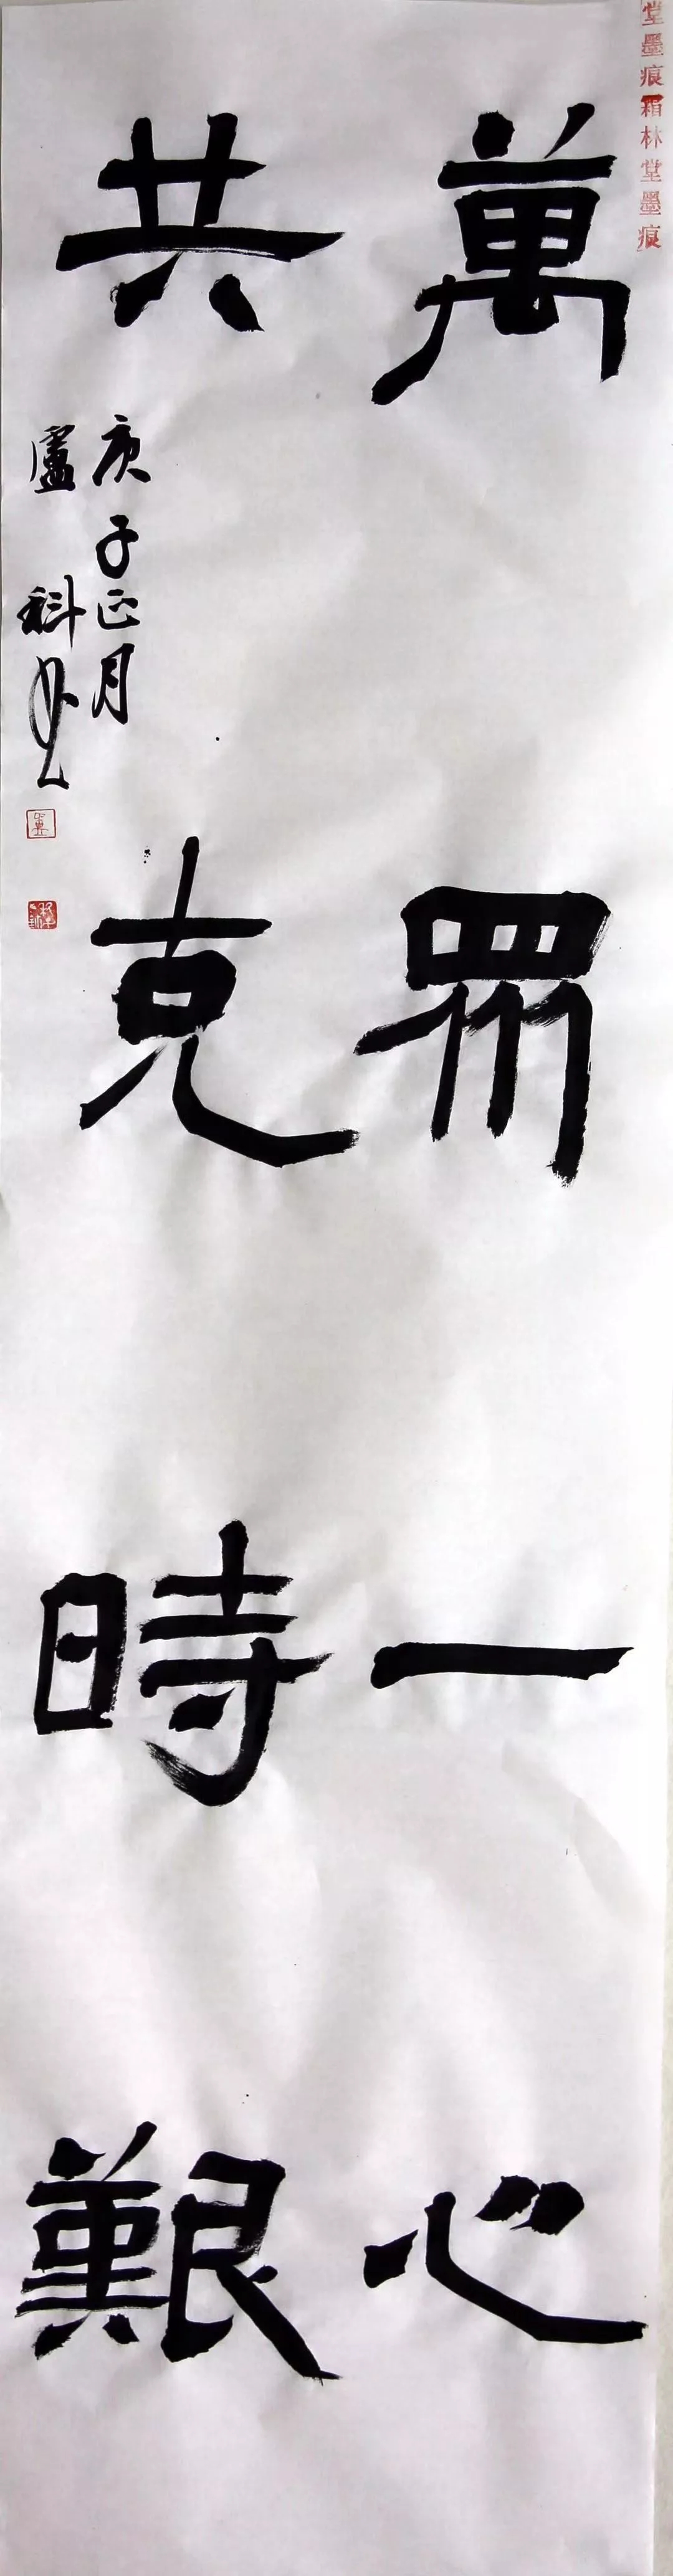 萬眾一心
共克時艱
庚子正月
盧科書
堂墨痕
霜林堂墨痕